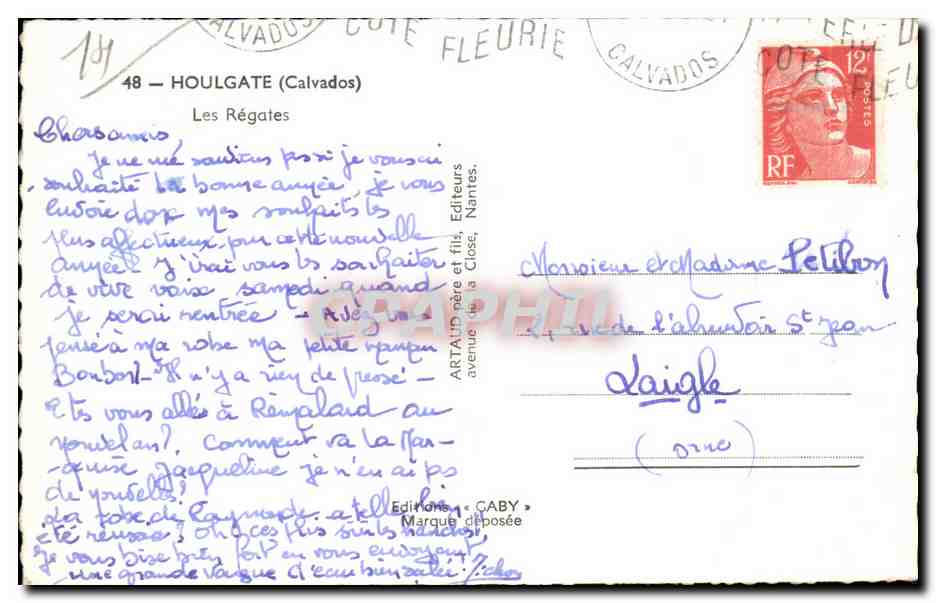 18
CALVADOS
COTE
FLEURIE
CALVADOS
COTE
FLEU
12F
POSTES
RF
48 — HOULGATE (Calvados)
Les Régates
Chers amis,
Je ne me souviens pas si je vous ai
souhaité la bonne année, je vous
envoie donc mes souhaits les
plus affectueux pour cette nouvelle
année. J'irai vous les souhaiter
de vive voix samedi quand
je serai rentrée — Avez vous
pensé à ma robe ma petite maman
Il n'y a rien de pressé —
Etes vous allés à Rémalard au
nouvel an? Comment va la Mar-
-quise Jacqueline je n'en ai pas
de nouvelles?
La robe de Raymonde a t elle bien
été réussie,
Je vous bise bien fort en vous envoyant
une grande vague d'eau bien salée.
ARTAUD père et fils, Editeurs
avenue de la Close, Nantes.
CPAPHIL
Monsieur et Madame Petibon
rue de l'abreuvoir St Jean
Laigle
(Orne)
Editions « GABY »
Marque déposée